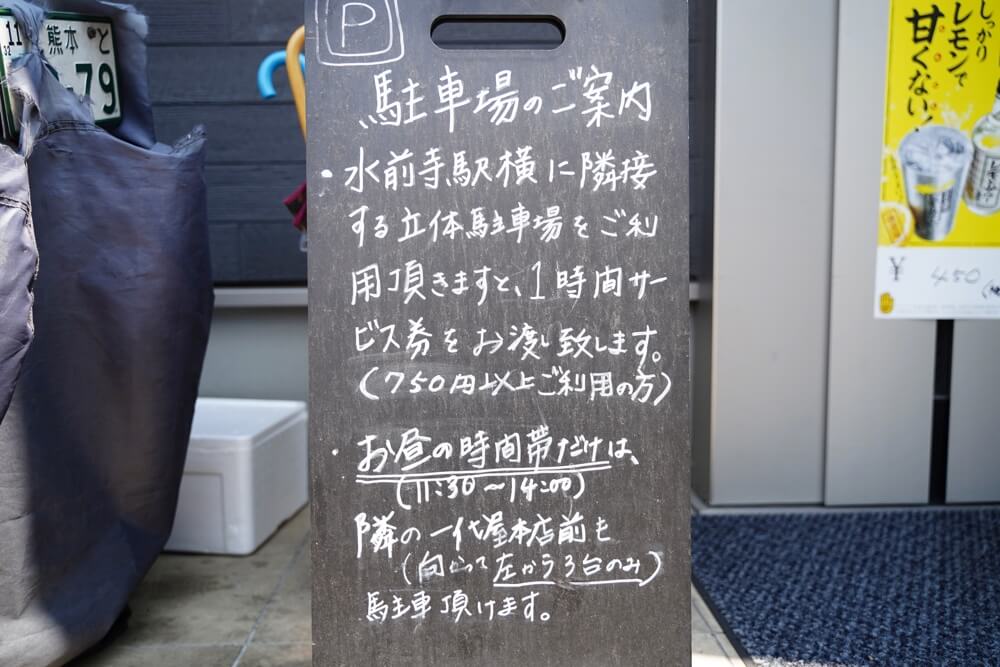 P
駐車場のご案内
・水前寺駅横に隣接
する立体駐車場をご利
用頂きますと、1時間サー
ビス券をお渡し致します。
(750円以上ご利用の方)
・お昼の時間帯だけは、
(11:30〜14:00)
隣の一代屋本店前も
(向かって左から3台のみ)
駐車頂けます。
11
32
熊本 と
79
しっかり
レモンで
甘くない!
¥ 450